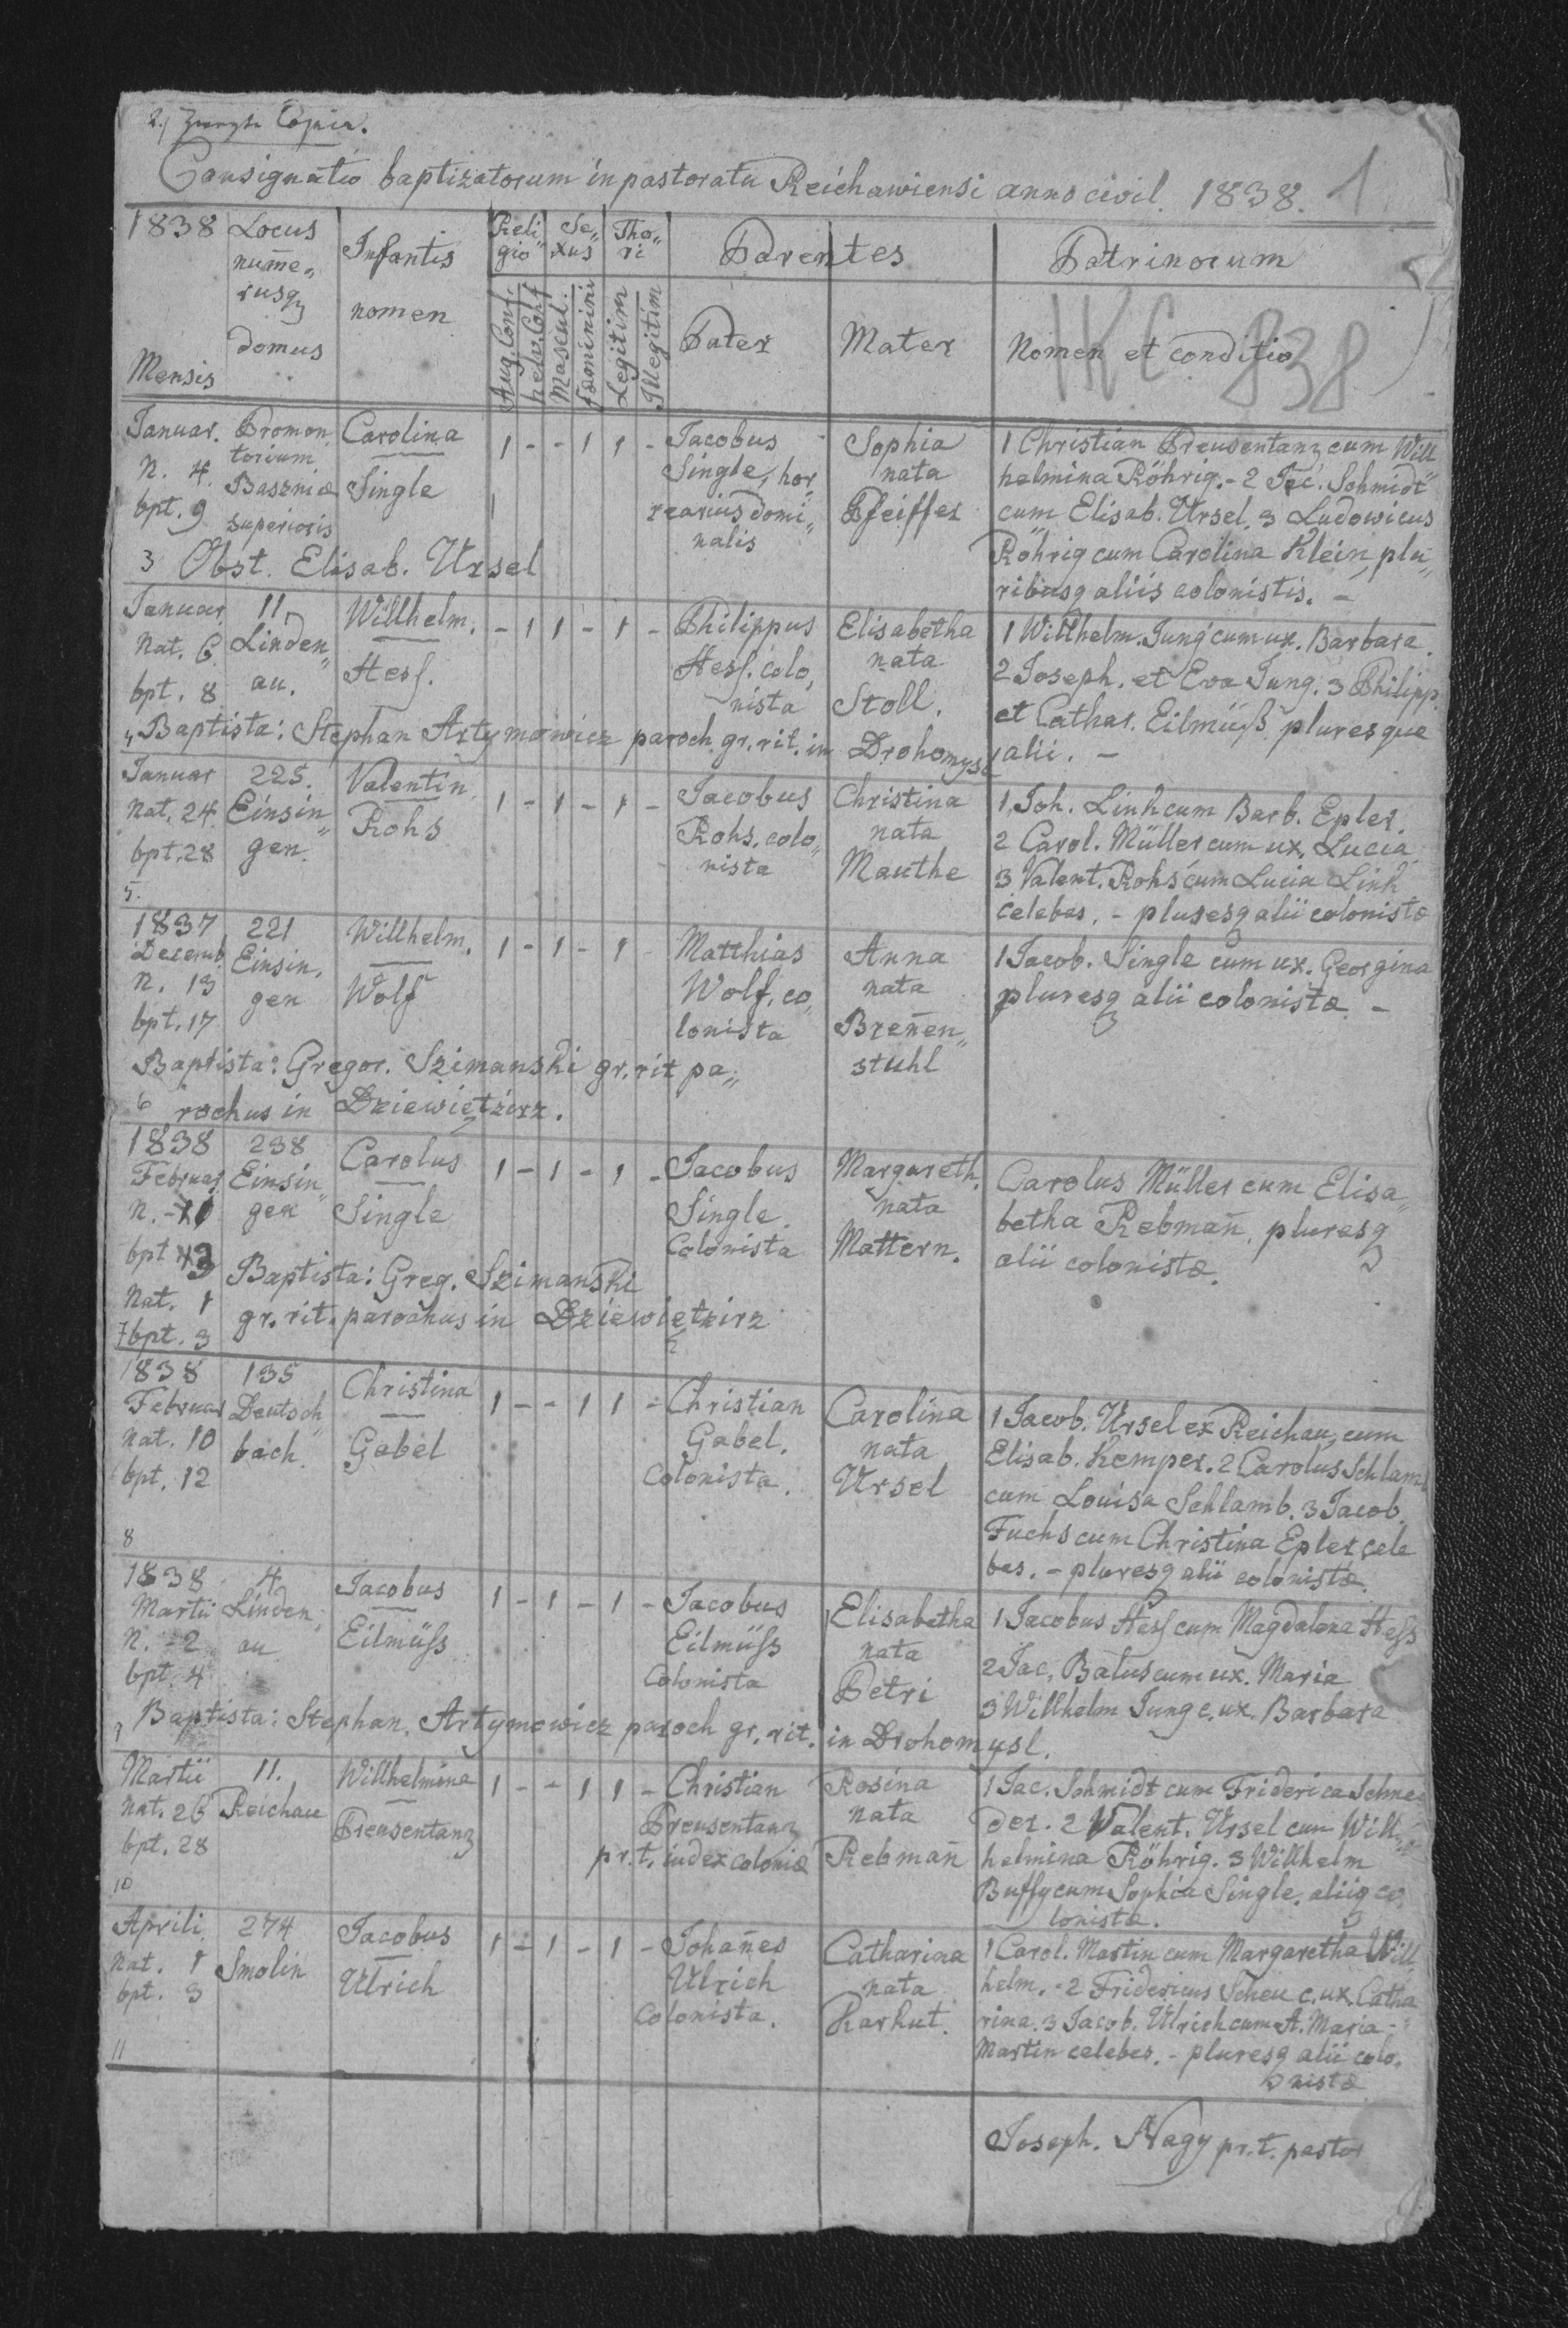 2.) Zweyte Copia.
Consignatio baptizatorum in pastoratu Reichawiensi anno civil. 1838. 1
1838
Mensis
Locus
nume„
rusq
domus
Infantis
nomen
Reli
gio
Se„
xus
Tho„
ri
Aug. Conf.
helv. Conf
Mascul.
fœminini
Legitim
Illegitim
Parentes
Pater
Mater
Patrinorum
Nomen et conditio
HKC 838
Januar.
N. 4.
bpt. 9
3
Promon
torium
Baszniæ
superioris
Carolina
Single
1 - - 1 1 -
Jacobus
Single, hor„
rearius domi„
nalis
Sophia
nata
Pfeiffer
1 Christian Preusentanz cum Will
helmina Röhrig. - 2 Jac. Schmidt
cum Elisab. Ursel. 3 Ludowicus
Röhrig cum Carolina Klein, plu„
ribusq aliis colonistis. -
Obst. Elisab. Ursel
Januar.
Nat. 6.
bpt. 8
4
11
Linden„
au.
Willhelm.
Hess.
- 1 1 - 1 -
Philippus
Hess. colo,
nista
Elisabetha
nata
Stoll.
1 Willhelm. Jung cum ux. Barbara.
2 Joseph. et Eva Jung. 3 Philipp.
et Cathar. Eilmüss pluresque
alii. -
Baptista: Stephan Artymowicz paroch. gr. rit. in Drohomysl
Januar
Nat. 24
bpt. 28
5.
225.
Einsin„
gen.
Valentin
Rohs
1 - 1 - 1 -
Jacobus
Rohs, colo„
nista
Christina
nata
Mauthe
1. Joh. Linh cum Barb. Epler.
2 Carol. Müller cum ux. Lucia
3 Valent. Rohs cum Lucia Linh
celebes. - pluresq alii colonistæ
1837
Decemb.
N. 13
bpt. 17
6
221
Einsin,
gen
Willhelm.
Wolf
1 - 1 - 1 -
Matthias
Wolf, co,
lonista
Anna
nata
Breñen„
stuhl
1 Jacob. Single cum ux. Georgina
pluresq alii colonistæ. -
Baptista: Gregor. Szimanski gr. rit pa„
rochus in Dziewiętzirz.
1838
Februar.
N. - 11
bpt 13
Nat. 1
bpt. 3
7
238
Einsin„
gen
Carolus
Single
1 - 1 - 1 -
Jacobus
Single.
Colonista
Margareth.
nata
Mattern.
Carolus Müller cum Elisa„
betha Rebmañ, pluresq
alii colonistæ.
Baptista: Greg. Szimanski
gr. rit. parochus in Dziewiętzirz
1838
Februar
Nat. 10
bpt. 12
8
135
Deutsch„
bach.
Christina
Gabel
1 - - 1 1 -
Christian
Gabel.
Colonista.
Carolina
nata
Ursel
1 Jacob. Ursel ex Reichau, cum
Elisab. Kemper. 2 Carolus Schlamb
cum Louisa Schlamb. 3 Jacob.
Fuchs cum Christina Epler cele
bes. - pluresq alii colonistæ.
1838
Martii
N. - 2
bpt. 4
9
4
Linden„
au
Jacobus
Eilmüss
1 - 1 - 1 -
Jacobus
Eilmüss
Colonista
Elisabetha
nata
Petri
1 Jacobus Hess cum Magdalena Hess
2 Jac. Balus cum ux. Maria
3 Willhelm Jung c. ux. Barbara
Baptista: Stephan. Artymowicz paroch gr. rit. in Drohomysl.
Martii
Nat. 26
bpt. 28
10
11.
Reichau
Willhelmina
Preusentanz
1 - - 1 1 -
Christian
Preusentanz
pr. t. iudex coloniæ
Rosina
nata
Rebmañ
1 Jac. Schmidt cum Friderica Schnei
der. 2 Valent. Ursel cum Will„
helmina Röhrig. 3 Willhelm
Buffy cum Sophia Single. aliiq co
lonistæ.
Aprili
Nat. 1
bpt. 3
11
274
Smolin
Jacobus
Ulrich
1 - 1 - 1 -
Johañes
Ulrich
Colonista.
Catharina
nata
Karhut.
1 Carol. Martin cum Margaretha Will
helm. - 2 Fridericus Scheu c. ux. Catha
rina. 3 Jacob. Ulrich cum A. Maria
Martin celebes. - pluresq alii colo„
nistæ
Joseph. Nagy pr. t. pastor